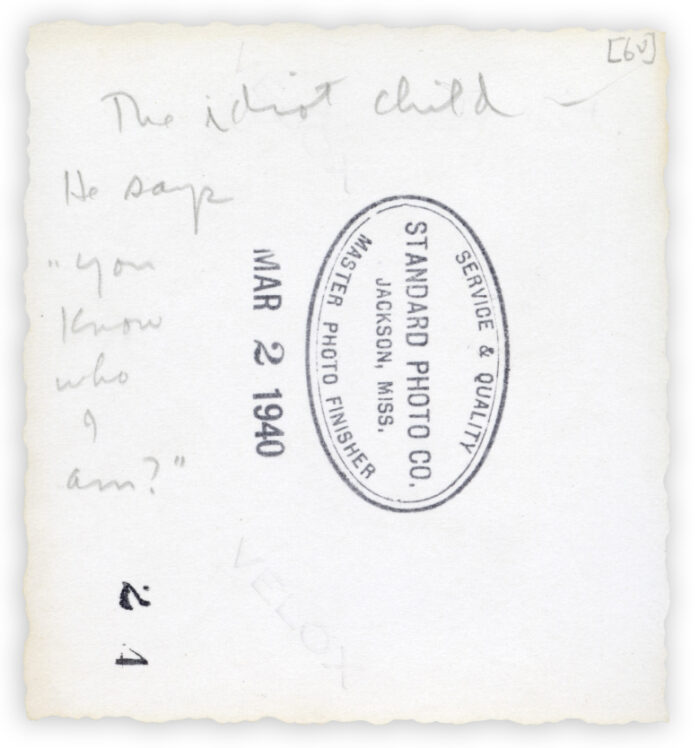 [60]
The idiot child —
He says
"you
know
who
I
am?"
MAR 2 1940
SERVICE & QUALITY
STANDARD PHOTO CO.
JACKSON, MISS.
MASTER PHOTO FINISHER
21
VELOX